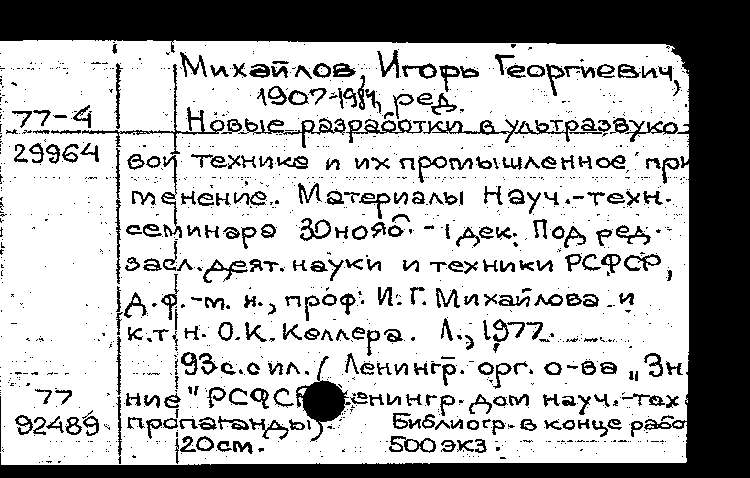 Михайлов, Игорь Георгиевич,
1907-1984, ред.
77-4 Новые разработки в ультразвуко-
29964 вой технике и их промышленное при
менение. Материалы Науч.-техн.
семинара 30 нояб. - 1 дек. Под ред.
засл. деят. науки и техники РСФСР,
д.ф.-м.н., проф. И.Г. Михайлова и
к.т.н. О.К. Келлера. Л., 1977.
93 с. с ил. ( Ленингр. орг. о-ва „Зн.
77 ние" РСФСР енингр. дом науч.-тех
92489 пропаганды). Библиогр. в конце рабо
20 см. 500 экз.